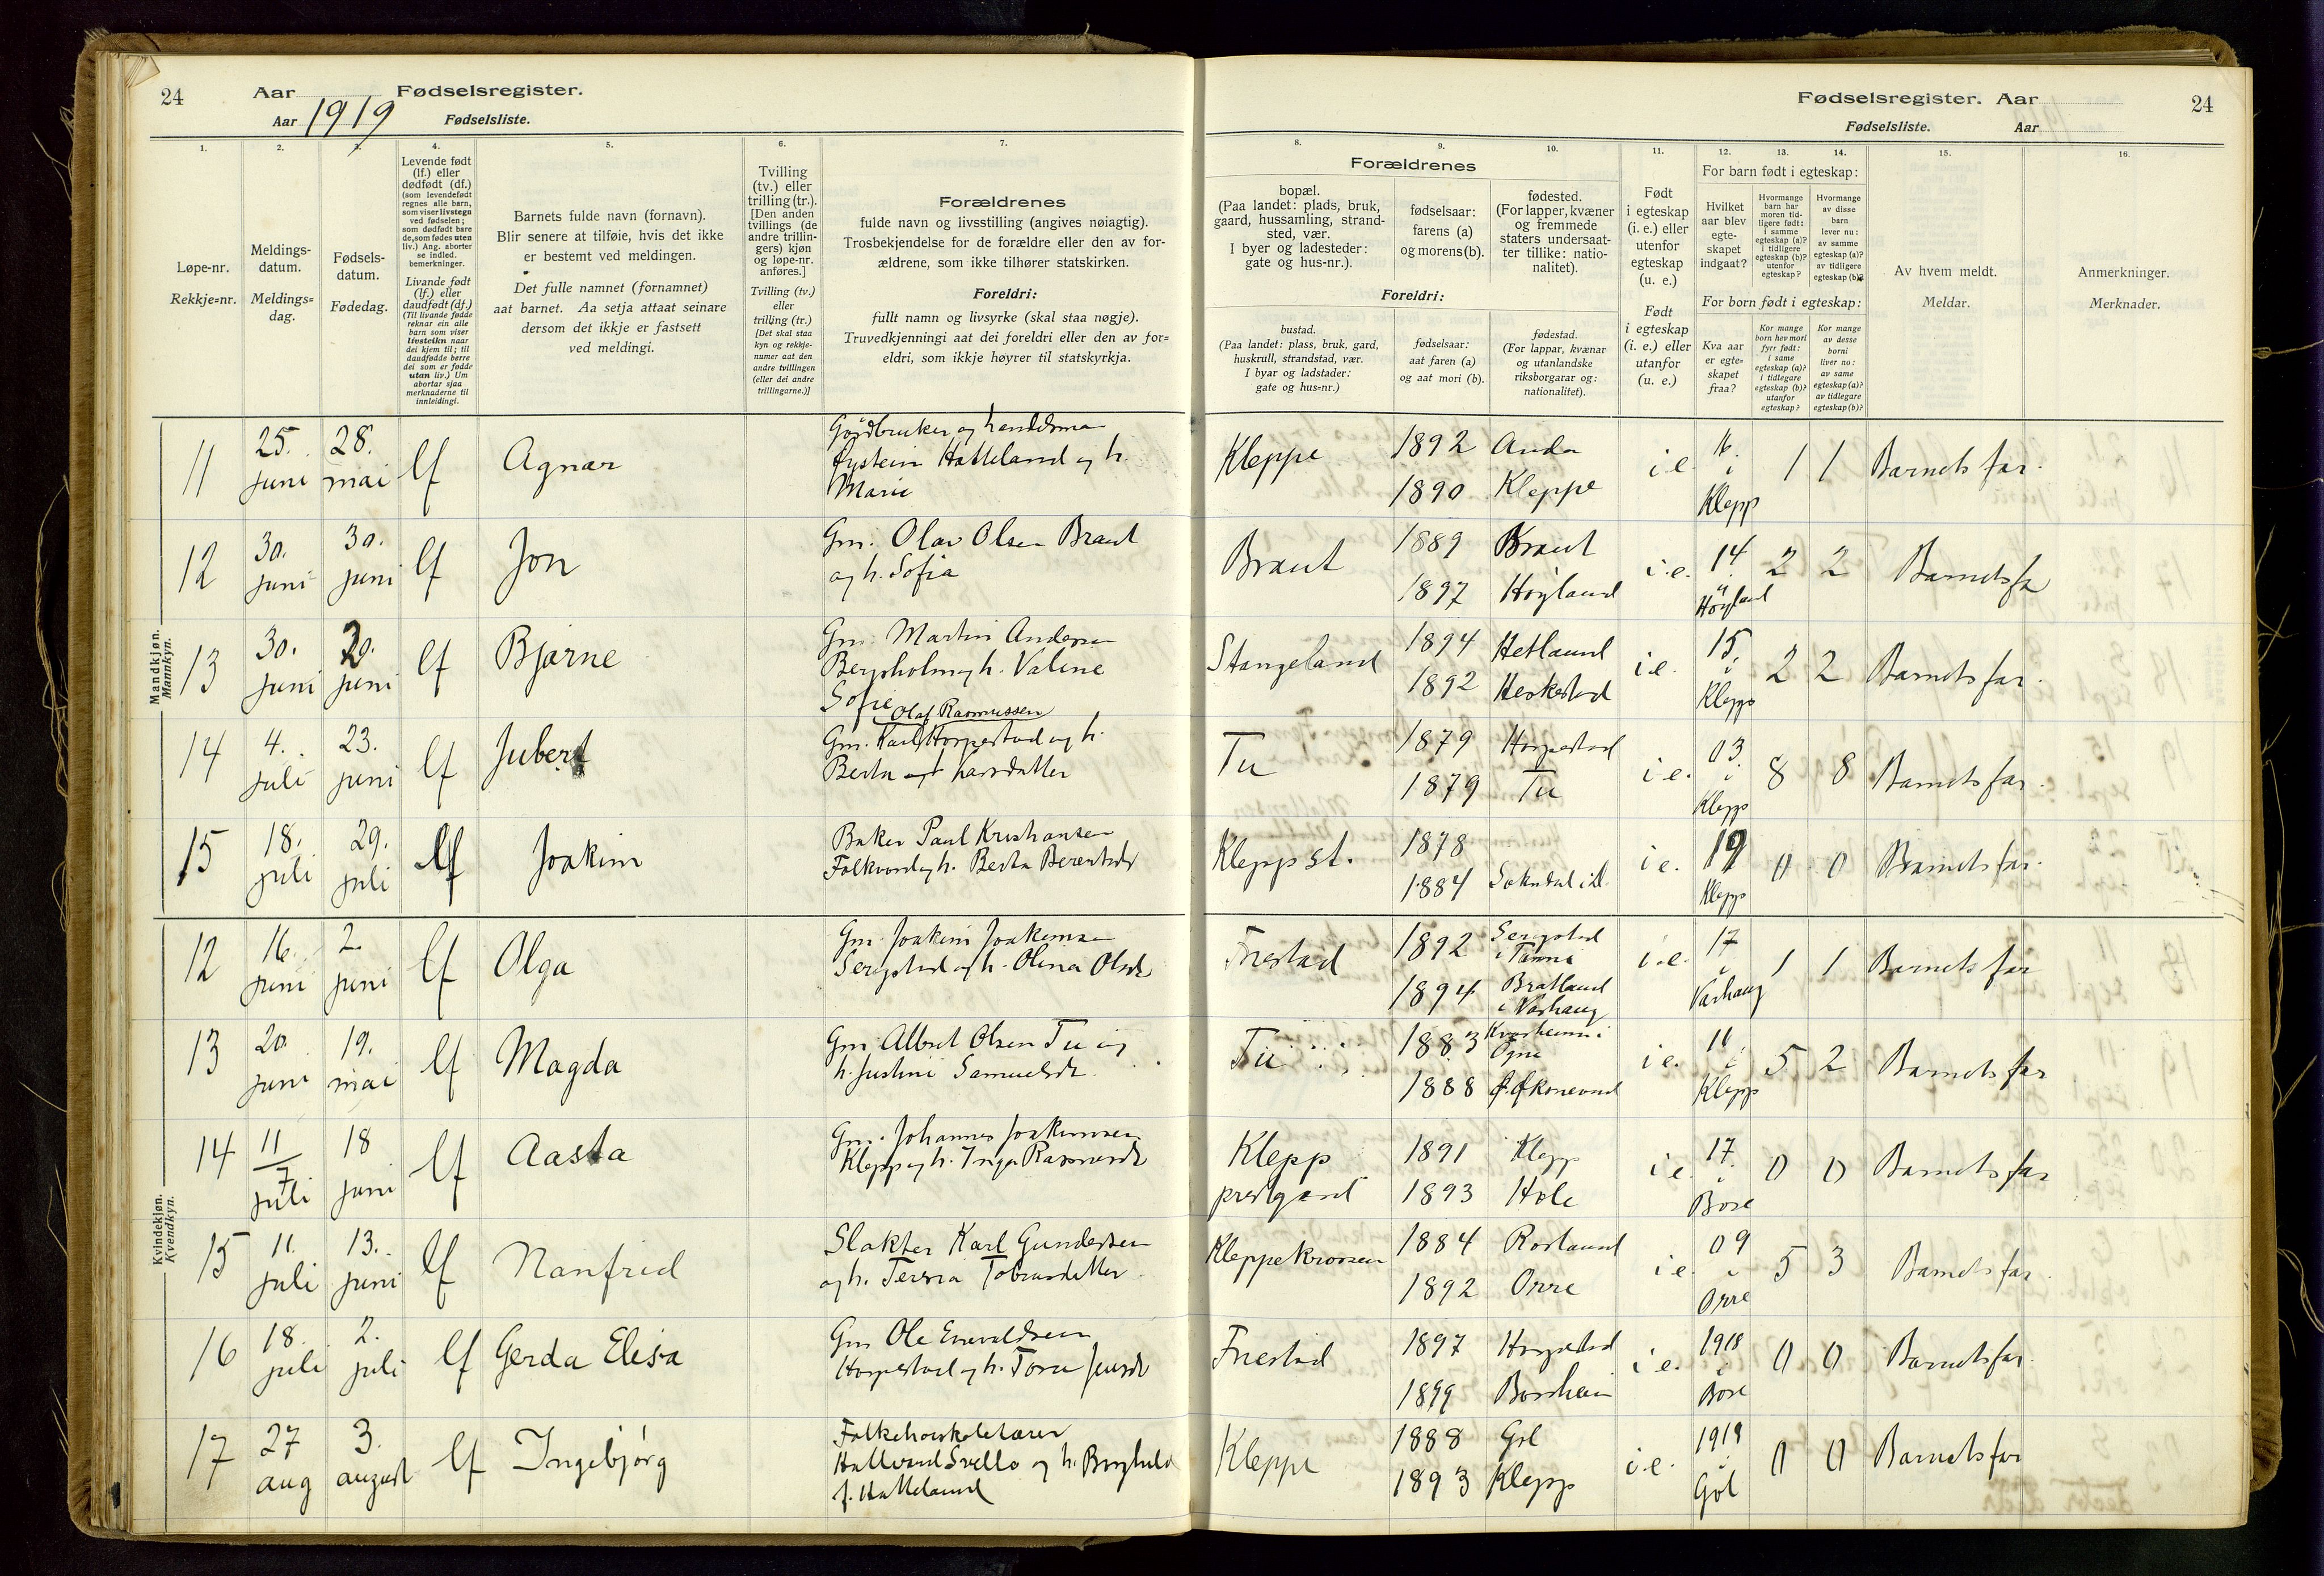 24 Aar Fødselsregister.
Aar 1919 Fødselsliste.
Fødselsregister. Aar 24
Fødselsliste. Aar
1. 2. 3. 4. 5. 6. 7.
Løpe-nr.
Rekkje-nr.
Meldings-
datum.
Meldings-
dag.
Fødsels-
datum.
Fødedag.
Levende født
(lf.) eller
dødfødt (df.)
(som levendefødt
regnes alle barn,
som viser livstegn
ved fødselen;
som dødfødt bare
de, som fødes uten
liv.) Ang. aborter
se indled.
bemerkninger.
Livande født
(lf.) eller
daudfødt (df.)
(Til livande fødde
reknar ein alle
barn som viser
livsteikn naar
dei kjem til; til
daudfødde berre
dei som er fødde
utan liv.) Um
abortar sjaa
merknaderne til
innleidingi.
Barnets fulde navn (fornavn).
Blir senere at tilføie, hvis det ikke
er bestemt ved meldingen.
Det fulle namnet (fornamnet)
aat barnet. Aa setja attaat seinare
dersom det ikkje er fastsett
ved meldingi.
Tvilling
(tv.) eller
trilling (tr.).
[Den anden
tvillings (de
andre trillin-
gers) kjøn
og løpe-nr.
anføres.]
Tvilling (tv.)
eller
trilling (tr.)
[Det skal staa
kyn og rekkje-
numer aat den
andre tvillingen
(eller dei andre
trillingarne.)]
Forældrenes
fulde navn og livsstilling (angives nøiagtig).
Trosbekjendelse for de forældre eller den av for-
ældrene, som ikke tilhører statskirken.
Foreldri:
fullt namn og livsyrke (skal staa nøgje).
Truvedkjenningi aat dei foreldri eller den av for-
eldri, som ikkje høyrer til statskyrkja.
8. 9. 10. 11. 12. 13. 14. 15. 16.
Forældrenes
bopæl.
(Paa landet: plads, bruk,
gaard, hussamling, strand-
sted, vær.
I byer og ladesteder:
gate og hus-nr.).
fødselsaar:
farens (a)
og morens (b).
fødested.
(For lapper, kvæner
og fremmede
staters undersaat-
ter tillike: natio-
nalitet).
Foreldri:
bustad.
(Paa landet: plass, bruk, gard,
huskrull, strandstad, vær.
I byar og ladstader:
gate og hus-nr.)
fødselsaar:
aat faren (a)
og aat mori (b).
fødestad.
(For lappar, kvænar
og utanlandske
riksborgarar og:
nationalitet).
Født
i egteskap
(i. e.) eller
utenfor
egteskap
(u. e.)
Født
i egteskap
(i. e.) eller
utanfor
(u. e.)
For barn født i egteskap:
Hvilket
aar blev
egte-
skapet
indgaat?
Hvormange
barn har
moren tid-
ligere født:
i samme
egteskap (a)?
i tidligere
egteskap (b)?
utenfor
egteskap?
Hvormange
av disse
barn
lever nu:
av samme
egteskap (a)?
av tidligere
egteskap (b)?
For born født i egteskap:
Kva aar
er egte-
skapet
fraa?
Kor mange
born hev mori
fyrr født:
i same
egteskap (a)?
i tidlegare
egteskap (b)?
utanfor
egteskap?
Kor mange
av desse
borni
liver no:
av same
egteskap (a)?
av tidlegare
egteskap (b)?
Av hvem meldt.
Meldar.
Anmerkninger.
Merknader.
Mandkjøn.
Mannkyn.
11 25. juni 28. mai lf Agnar
Gardbruker og handelsman
Øystein Hatteland og h.
Marie
Kleppe 1892 Anda i e. 16. i Klepp 1 1 Barnets far.
1890 Kleppe
12 30. juni 30. juni lf Jon
Gm. Olav Olsen Braut
og h. Sofia
Braut 1889 Braut i.e. 14 i Høyland 2 2 Barnets fa
1897 Høyland
13 30. juni 20. juni lf Bjarne
Gm. Martin Andersen
Bergsholm og h. Valine
Sofie
Stangeland 1894 Hetland i e. 15. i Klepp 2 2 Barnets far.
1892 Heskestad
14 4. juli 23. juni lf Jubert
Olaf Rasmussen
Gm. Karl Horpestad og h.
Berta Larsdatter
Tu 1879 Horpestad i e. 03. i Klepp 8 8 Barnets far.
1879 Tu
15 18. juli 29. juli lf Joakim
Baker Paul Kristiansen
Folkvord og h. Berta Berentsdr
Klepp st. 1878 i e. 19 Klepp 0 0 Barnets far.
1884 Sokndal i D.
Kvindekjøn.
Kvendkyn.
12 16. juni 2. juni lf Olga
Gm. Joakim Joakimsen
Serigstad og h. Olina Olsdr
Friestad 1892 Serigstad
i Time i.e. 17 i Varhaug 1 1 Barnets far
1894 Bratland
i Varhaug
13 20. juni 19. mai lf Magda
Gm. Albert Olsen Tu og
h. Justine Samuelsdr.
Tu 1883 Kvalheim i
Ogna i e. 11 i Klepp 5 2 Barnets far
1888
14 11/7 juli 18 juni lf Aasta
Gm. Johannes Joakimsen
Klepp og h. Inga Rasmusdr
Klepp
prestgard 1891 Klepp i e. 17. i Bore 0 0 Barnets far
1893 Hole
15 11. juli 13. juni lf Nanfrid
Slakter Karl Gundersen
og h. Terina Tobiasdatter
Kleppekrossen 1884 Rosland i e. 09 i Orre 5 3 Barnets far.
1892 Orre
16 18. juli 2. juli lf Gerda Elisa
Gm Ole Enevaldsen
Horpestad og h. Tora Jensdr
Friestad 1897 Horpestad i e. 1918 i Bore 0 0 Barnets far.
1899 Borsheim
17 27 aug 3. august lf Ingebjørg
Folkehøiskolelærer
Hallvard Svello og h. Borghild
f. Hatteland
Kleppe 1888 Gol i.e. 1919 i Gol 0 0 Barnets far
1893 Klepp